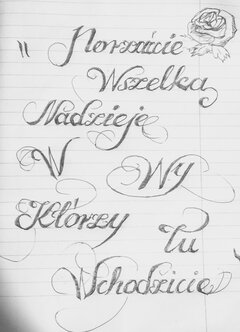 " Porzućcie
Wszelką
Nadzieję
W Wy
Którzy Tu
Wchodzicie